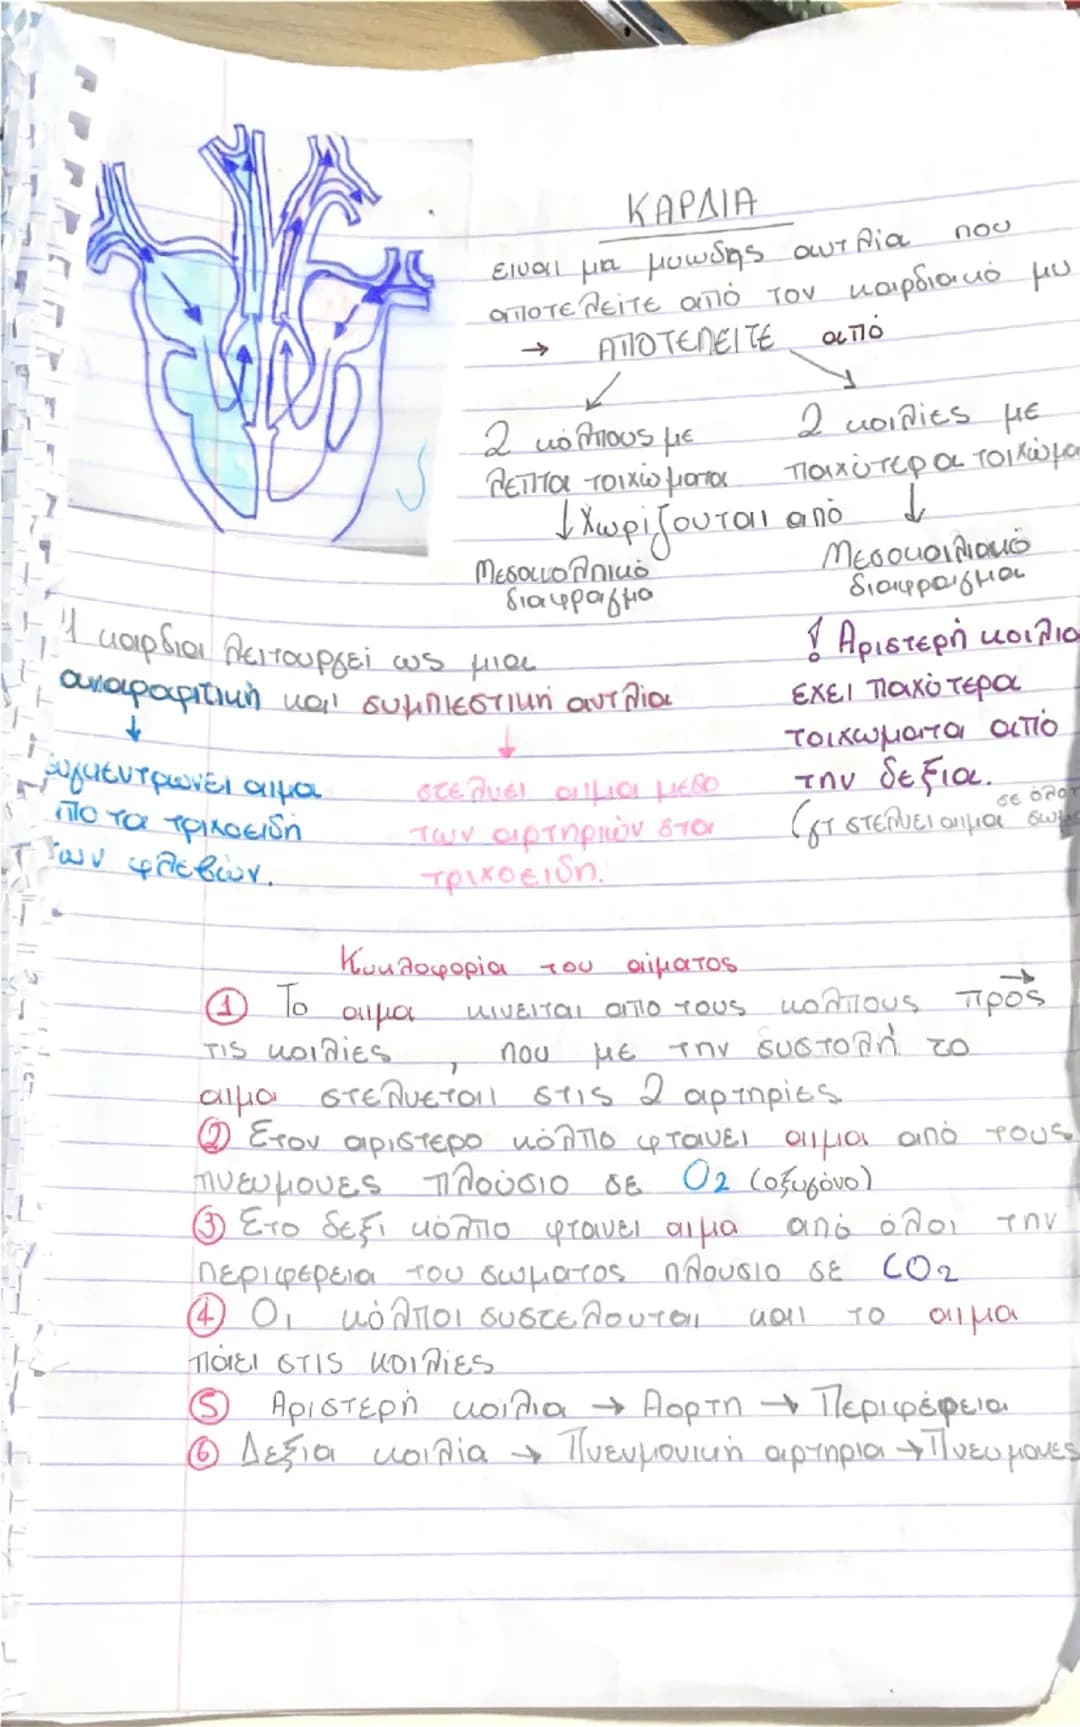 ΚΑΡΔΙΑ
ειναι μια μυωδης αντλία που
αποτελείτε από τον καρδιακό μυ
→ ΑΠΟΤΕΛΕΙΤΕ από
2 κόλπους με
λεπτα τοιχώματα
2 κοιλίες με
παχύτερα τοιχώμα
↓ Χωρίζονται από ↓
Μεσοκολπικό
διαφραγμα
Μεσοκοιλιακό
διαφραγμα
Η καρδια λειτουργεί ως μια
αναρροφητική και συμπιεστική αντλία
↓
πο τα τριχοειδή
των φλεβών.
↓
στελνει αιμα μεσο
των αρτηριών στα
τριχοειδη.
! Αριστερή κοιλια
εχει παχύτερα
τοιχωματα από
την δεξια.
(γτ στελνει αιμα σε όλο
Κυκλοφορία του αίματος
① Το αιμα κινειται απο τους κολπους προς
τις κοιλίες , που με την συστολή το
αιμα στελνεται στις 2 αρτηρίες
② Στον αριστερο κόλπο φτανει αιμα από τους
πνευμονες πλούσιο σε O2 (οξυγόνο)
③ Στο δεξι κόλπο φτανει αιμα από όλη την
περιφερεια του σωματος πλουσιο σε CO2
④ Οι κόλποι συστελονται και το αιμα
πάει στις κοιλίες
⑤ Αριστερή κοιλια → Αορτη → Περιφέρεια
⑥ Δεξια κοιλία → Πνευμονική αρτηρια → Πνευμονες